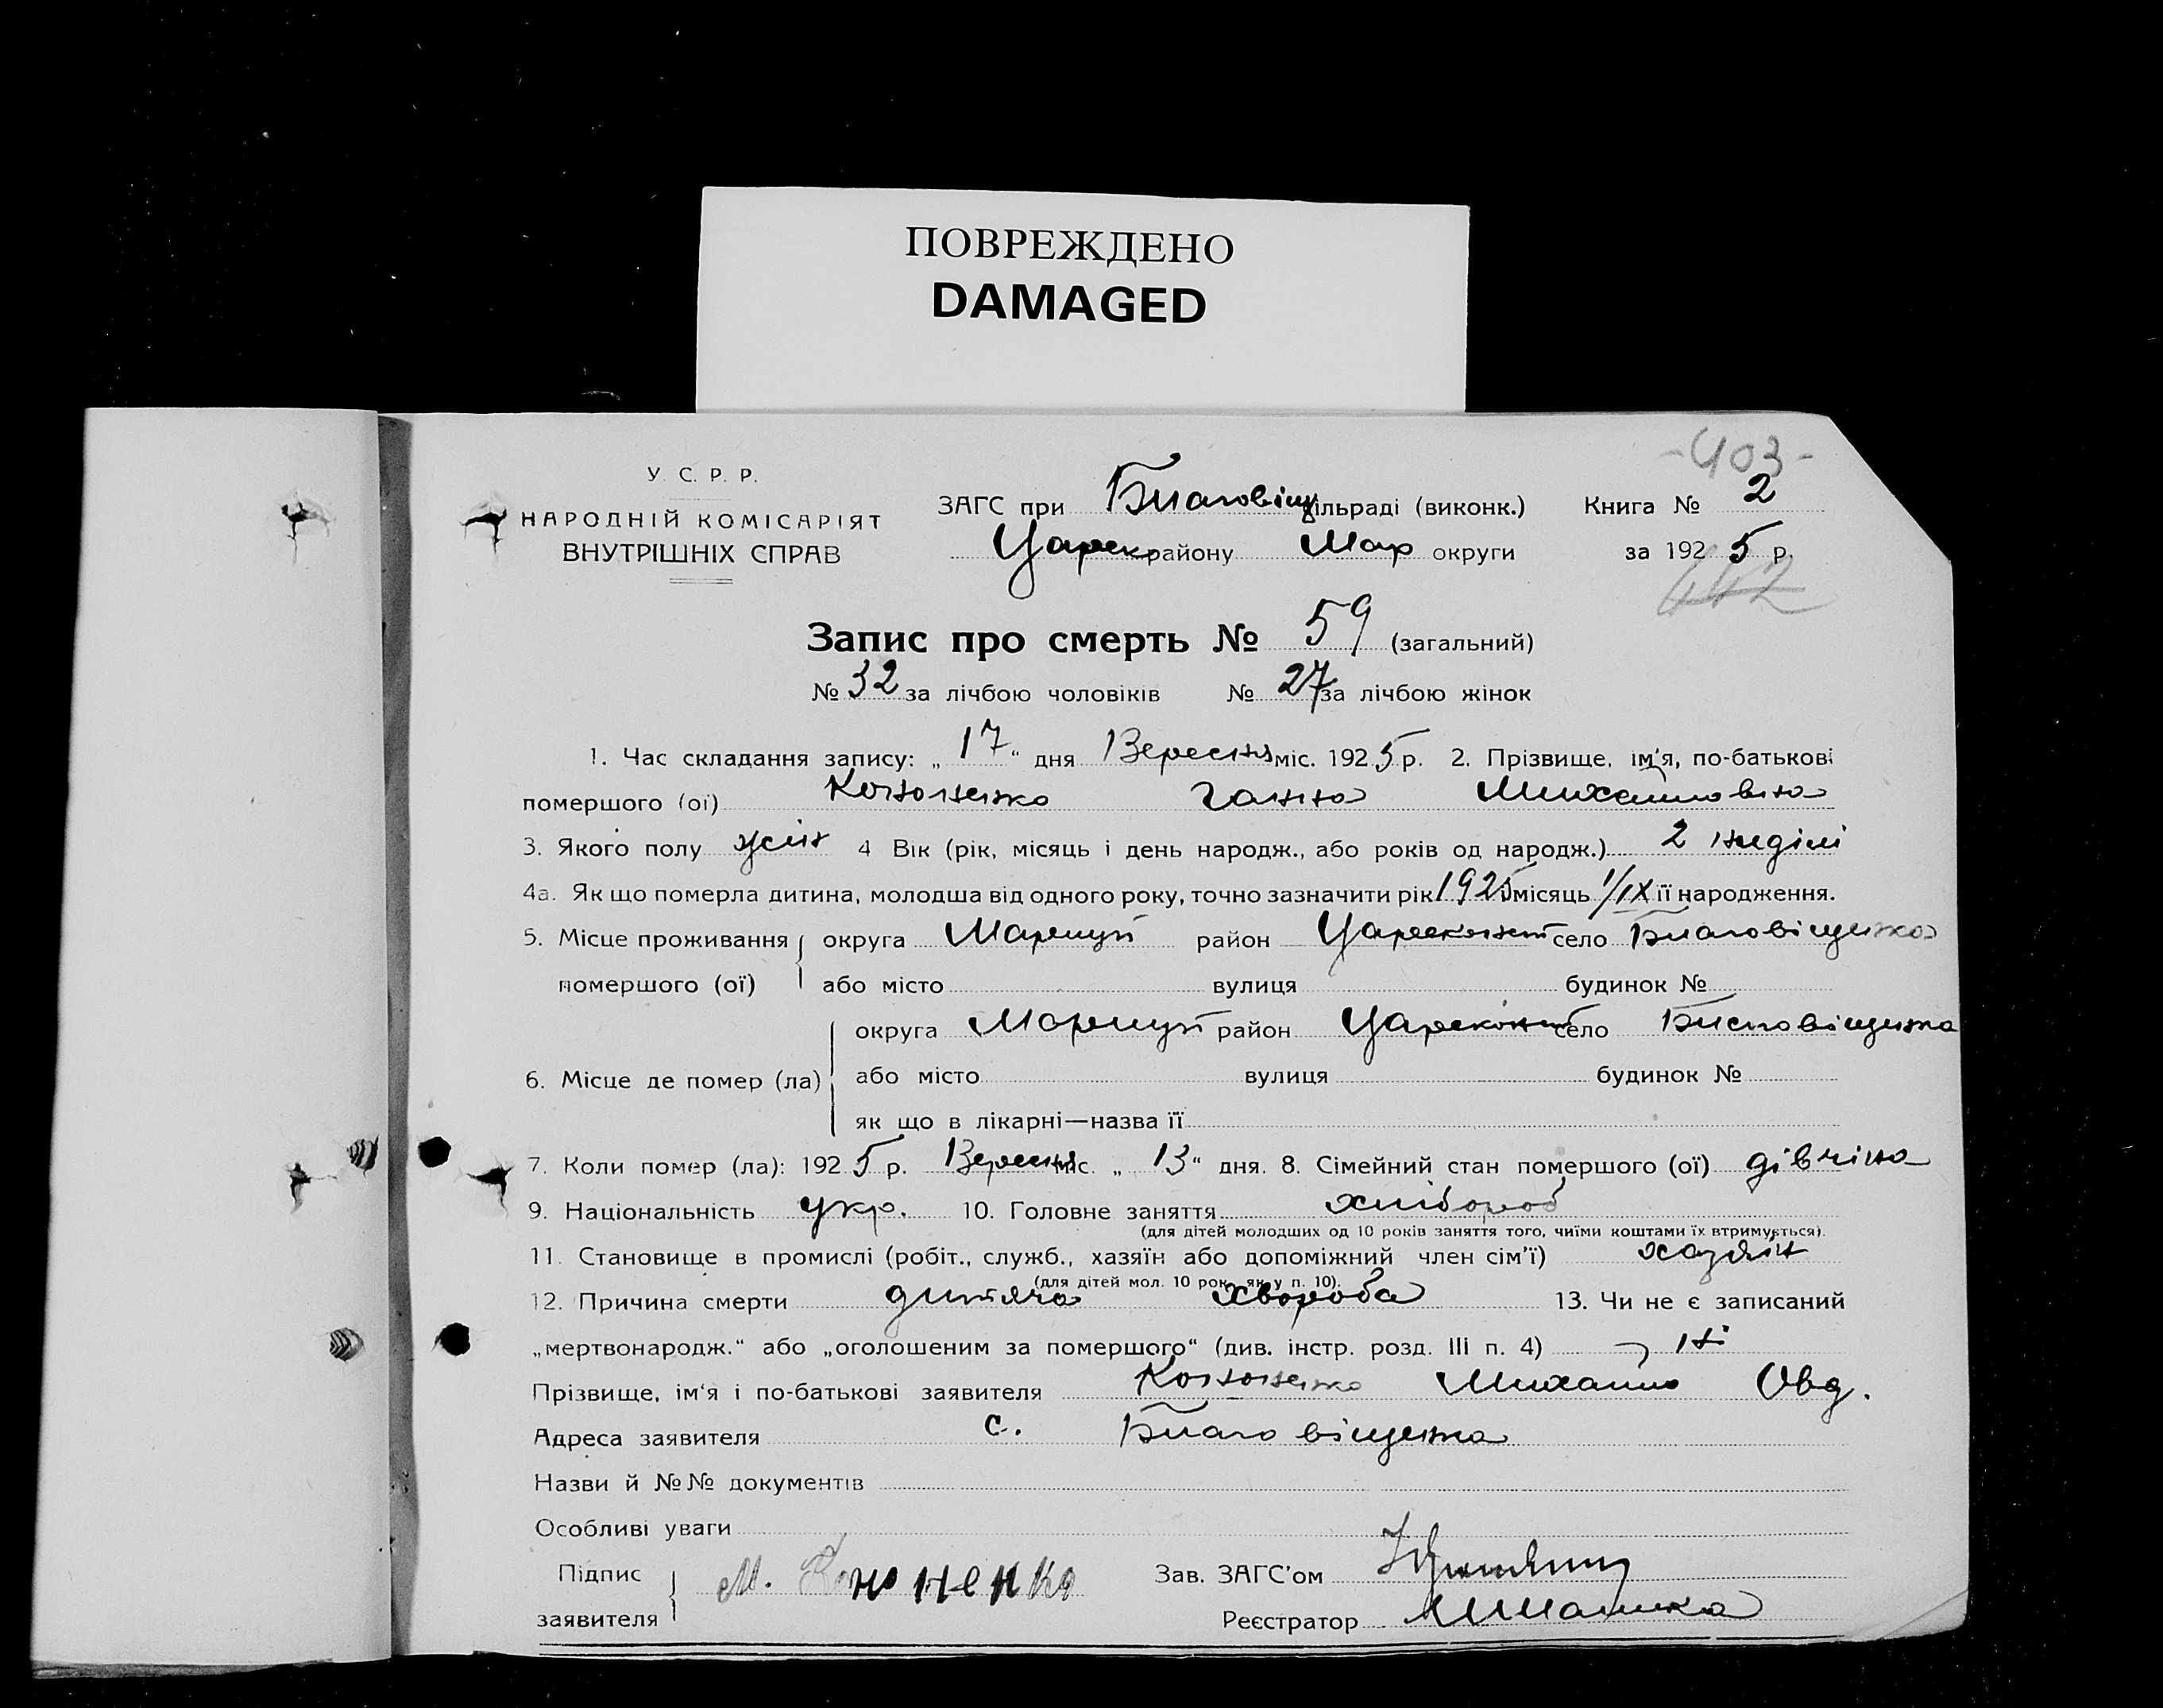 ПОВРЕЖДЕНО
DAMAGED
-403-
У. С. Р. Р.
НАРОДНІЙ КОМІСАРІЯТ
ВНУТРІШНІХ СПРАВ
ЗАГС при Благовіщ сільраді (виконк.) Книга № 2
Царек району Мар округи за 1925 р.
442
Запис про смерть № 59 (загальний)
№ 32 за лічбою чоловіків № 27 за лічбою жінок
1. Час складання запису: „17“ дня Вересня міс. 1925 р. 2. Прізвище, ім'я, по-батькові
помершого (ої) Кононенко Ганна Михайловна
3. Якого полу жін 4 Вік (рік, місяць і день народж., або років од народж.) 2 неділі
4а. Як що померла дитина, молодша від одного року, точно зазначити рік 1925 місяць 1/IX її народження.
5. Місце проживання округа Маріуп район Цареконст село Благовіщенка
помершого (ої) або місто вулиця будинок №
округа Маріуп район Цареконст село Благовіщенка
6. Місце де помер (ла) або місто вулиця будинок №
як що в лікарні—назва її
7. Коли помер (ла): 1925 р. Вересня міс. „13“ дня. 8. Сімейний стан помершого (ої) дівчина
9. Національність укр. 10. Головне заняття хлібороб
(для дітей молодших од 10 років заняття того, чиїми коштами їх втримується).
11. Становище в промислі (робіт., служб., хазяїн або допоміжний член сім'ї) хазяїн
(для дітей мол. 10 рок., як у п. 10).
12. Причина смерти дитяча хвороба 13. Чи не є записаний
„мертвонародж.“ або „оголошеним за помершого“ (див. інстр. розд. III п. 4) ні
Прізвище, ім'я і по-батькові заявителя Кононенко Михайло Овд.
Адреса заявителя с. Благовіщенка
Назви й №№ документів
Особливі уваги
Підпис заявителя М. Кононенко Зав. ЗАГС'ом
Реєстратор